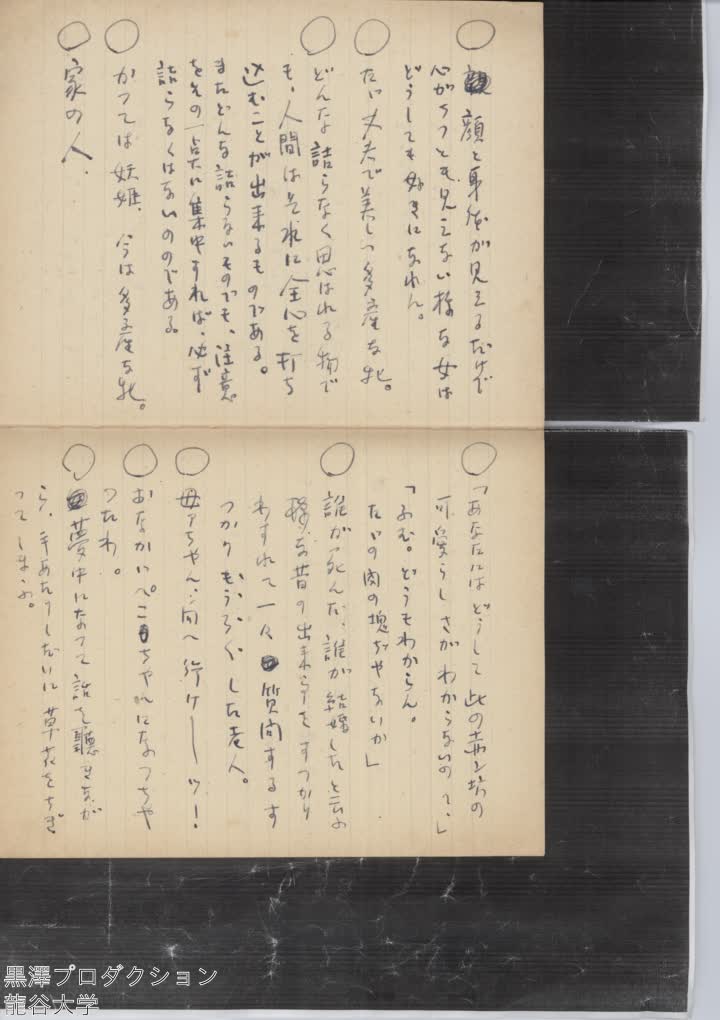 ○ 顔と身体が見えるだけで
心がちつとも見えない様な女は
どうしても好きになれん。
○ たゞ丈夫で美しい多産な牝。
○ どんな詰らなく思はれる物で
も、人間はそれに全心を打ち
込むことが出来るものである。
またどんな詰らないものでも、注意
をその一点に集中すれば、必ず
詰らなくはないのである。
○ かつては妖姫、今は多産な牝。
○ 家の人、
○ 「あなたにはどうして此の赤ン坊の
可愛らしさがわからないの？」
「ふむ。どうもわからん。
たゞの肉の塊ぢやないか」
○ 誰が死んだ、誰が結婚したと云ふ
様な昔の出来事をすつかり
わすれて一々質問するす
つかりもうろくした老人。
○ 母アちやん、向へ行けーッ！
○ おなかゞペコちやんになつちや
つたわ。
○ 夢中になつて話を聴きなが
ら、手あたりしだいに草花をちぎ
つてしまふ。
黒澤プロダクション
龍谷大学